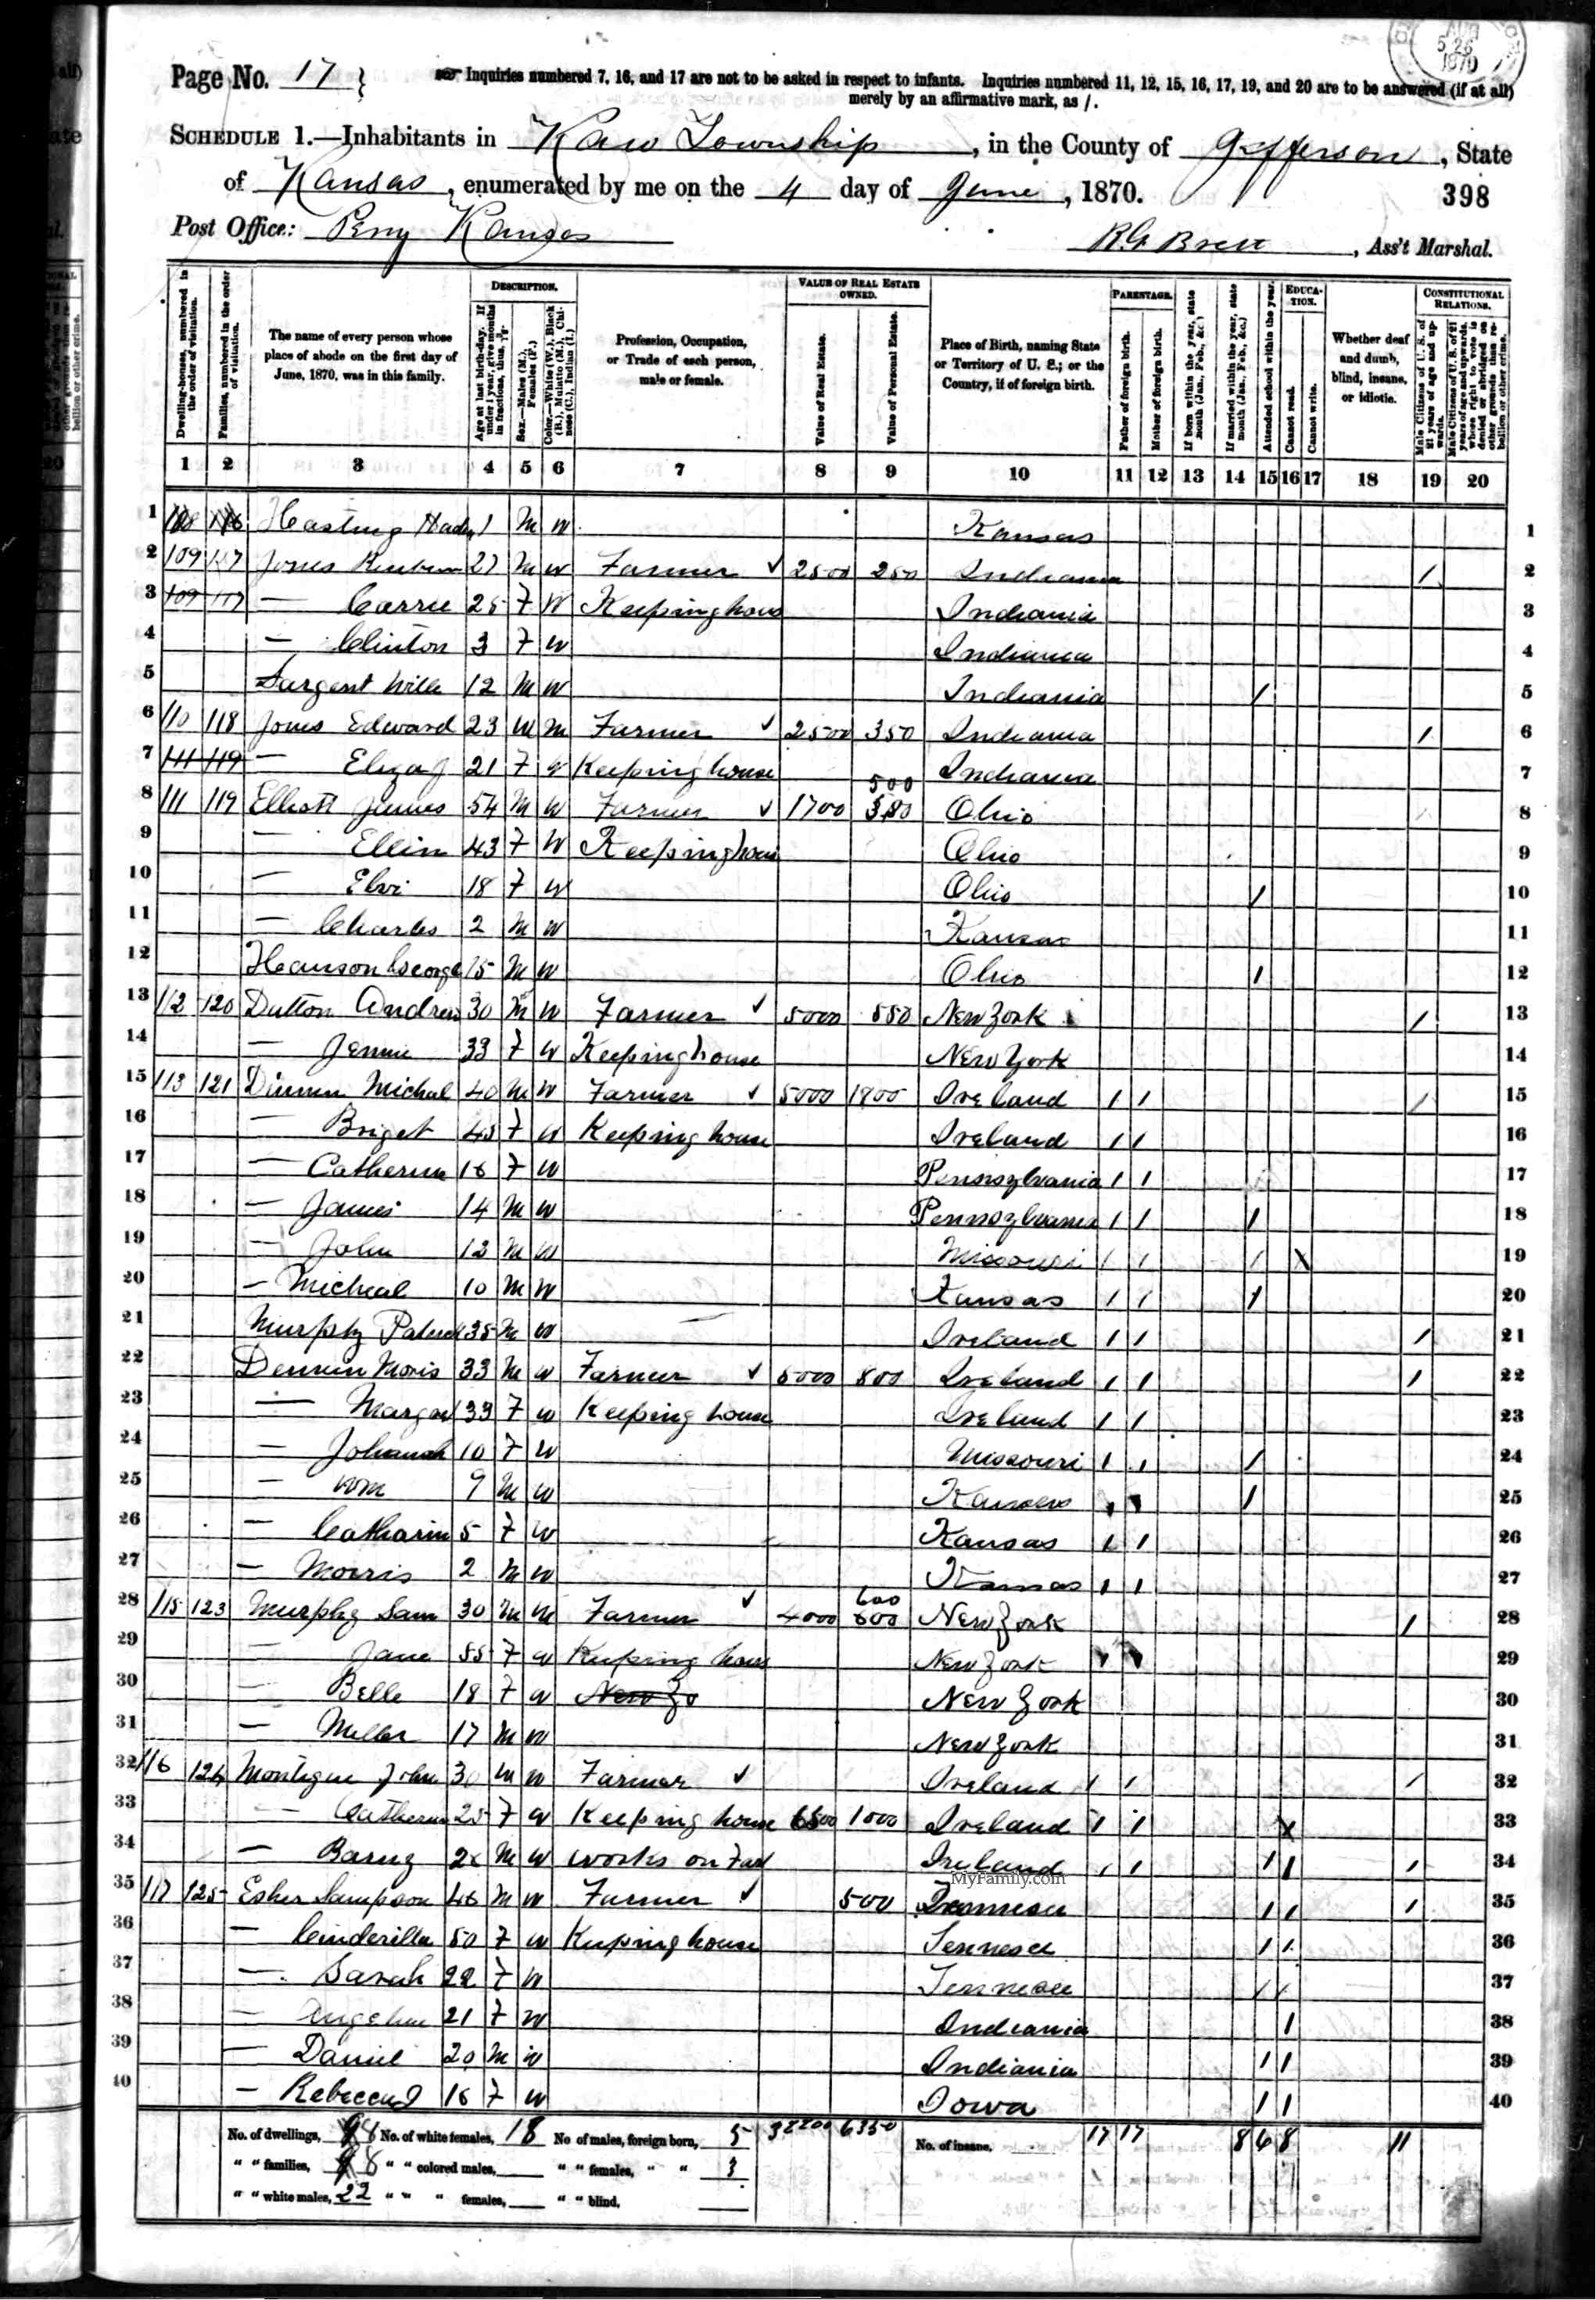 Page No. 17
Inquiries numbered 7, 16, and 17 are not to be asked in respect to infants. Inquiries numbered 11, 12, 15, 16, 17, 19, and 20 are to be answered (if at all)
merely by an affirmative mark, as /.
AUG 26 1870
SCHEDULE 1.—Inhabitants in Kaw Township, in the County of Jefferson, State
of Kansas, enumerated by me on the 4 day of June, 1870.
398
Post Office: Perry Kansas
Ass't Marshal.
Dwelling-houses, numbered in the order of visitation.
Families, numbered in the order of visitation.
The name of every person whose place of abode on the first day of June, 1870, was in this family.
DESCRIPTION.
Age at last birth-day. If under 1 year, give months in fractions, thus,
Sex.—Males (M.), Females (F.)
Color.—White (W.), Black (B.), Mulatto (M.), Chinese (C.), Indian (I.)
Profession, Occupation, or Trade of each person, male or female.
VALUE OF REAL ESTATE OWNED.
Value of Real Estate.
Value of Personal Estate.
Place of Birth, naming State or Territory of U. S.; or the Country, if of foreign birth.
PARENTAGE.
Father of foreign birth.
Mother of foreign birth.
If born within the year, state month (Jan., Feb., &c.)
If married within the year, state month (Jan., Feb., &c.)
Attended school within the year.
EDUCATION.
Cannot read.
Cannot write.
Whether deaf and dumb, blind, insane, or idiotic.
CONSTITUTIONAL RELATIONS.
Male Citizens of U. S. of 21 years of age and upwards.
Male Citizens of U. S. of 21 years of age and upwards, whose right to vote is denied or abridged on other grounds than rebellion or other crime.
1 2 3 4 5 6 7 8 9 10 11 12 13 14 15 16 17 18 19 20
1 Hasting 1 M W Kansas 1
2 109 117 Jones Reuben 27 M W Farmer ✓ 2500 250 Indiana / 2
3 109 117 — Carrie 25 F W Keeping hous Indiania 3
4 — Clinton 3 F W Indiana 4
5 Sargent Wille 12 M W Indiania / 5
6 110 118 Jones Edward 23 M M Farmer ✓ 2500 350 Indiana / 6
7 111 119 — Eliza J 21 F W Keeping house Indiana 7
8 111 119 Elliott James 54 M W Farmer ✓ 1700 500 Ohio 8
9 — Ellin 43 F W Keeping hous Ohio 9
10 — Elvi 18 F W Ohio / 10
11 — Charles 2 M W Kansas 11
12 Hanson George 15 M W Ohio / 12
13 112 120 Dutton Andrew 30 M W Farmer ✓ 5000 550 New York / 13
14 — Jennie 33 F W Keeping house New York 14
15 113 121 Michal 40 M W Farmer ✓ 5000 1800 Ireland / / / 15
16 — Briget 45 F W Keeping house Ireland / / 16
17 — Catherine 16 F W Pennsylvania / / 17
18 — James 14 M W Pennsylvania / / / 18
19 — John 12 M W Missouri / / / X 19
20 — Micheal 10 M W Kansas / / / 20
21 Murphy Patrick 35 M W Ireland / / / 21
22 Moris 33 M W Farmer ✓ 5000 800 Ireland / / / 22
23 — Margret 33 F W Keeping house Ireland / / 23
24 — Johanah 10 F W Missouri / / / 24
25 — Wm 9 M W Kansas / / / 25
26 — Catharin 5 F W Kansas / / 26
27 — Morris 2 M W Kansas / / 27
28 115 123 Murphy Sam 30 M M Farmer ✓ 4000 600 New York / 28
29 — Jane 55 F W Keeping hous New York 29
30 — Belle 18 F W New Yo New York 30
31 — Miller 17 M W New York 31
32 116 124 Montigue John 30 M W Farmer ✓ Ireland / / / 32
33 — Catherine 25 F W Keeping house 1000 Ireland / / X 33
34 — Barny M W Works on Ireland / / / / / 34
MyFamily.com
35 117 125 Esher Sampson 46 M W Farmer ✓ 500 Tennesee / / / 35
36 — Cinderilla 50 F W Keeping house Tennesee / / 36
37 — Sarah 22 F W Tennesee / / 37
38 — Angeline 21 F W Indiania / 38
39 — Daniel 20 M W Indiania / / 39
40 — Rebecca J 16 F W Iowa / / 40
No. of dwellings, 8 No. of white females, 18 No of males, foreign born, 5 32200 6350 No. of insane, 17 17 8 6 8 11
" " families, 8 " " colored males, " " females, " " 3
" " white males, 22 " " " females, " " blind,